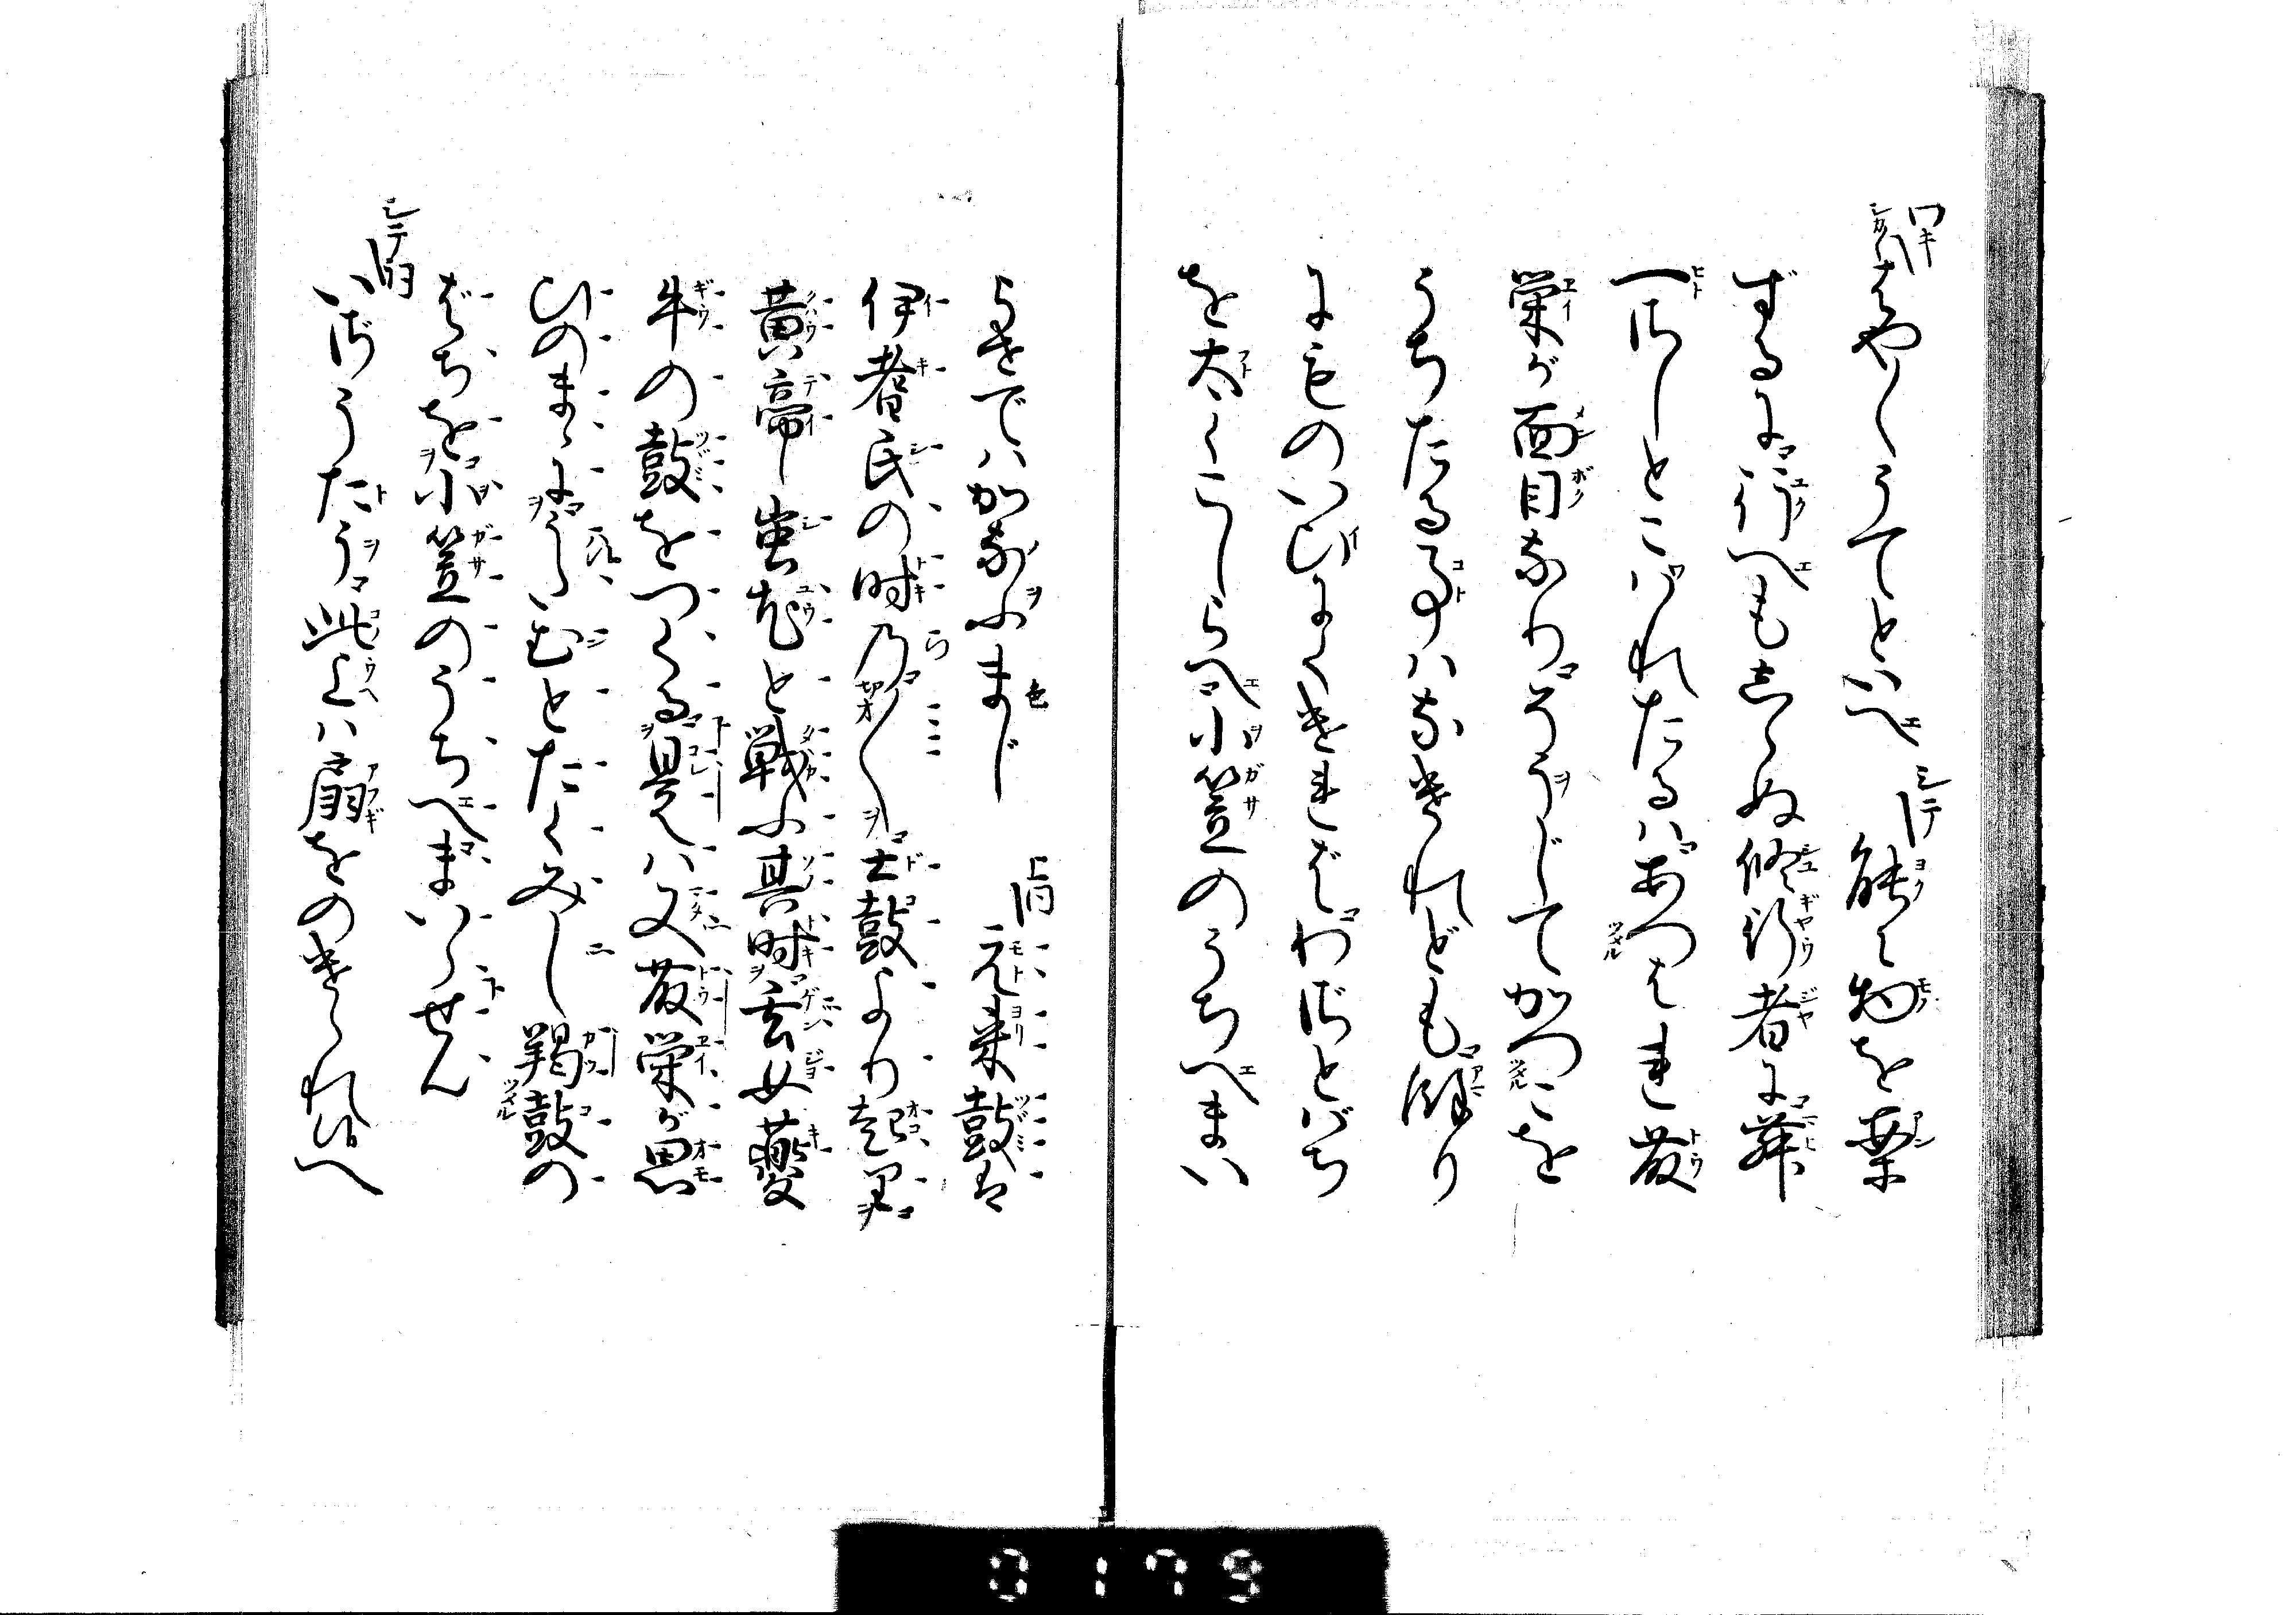 ワキ はや〱うてといへ シテ 能〻物を案
ずるに行へもしらぬ修行者に舞
一さしとこハれたるハあつはれ藤
栄が面目なりそうじてかつこを
うちたる事ハなけれども餘り
にものいひにくければわざとばち
を太くこしらへ小笠のうちへまい
らせでハかなふまじ 上同 元来鼓は
伊耆氏の時乃〱土鼓より起里
黄帝蚩尤と戦ふ其時玄女夔
牛の鼓をつくる是ハ又藤栄が思
ひのまゝにうたむとたくみし羯鼓の
ばちを小笠のうちへまいらせん
シテ詞 いざうたう此上ハ扇をのけられ候へ
0179